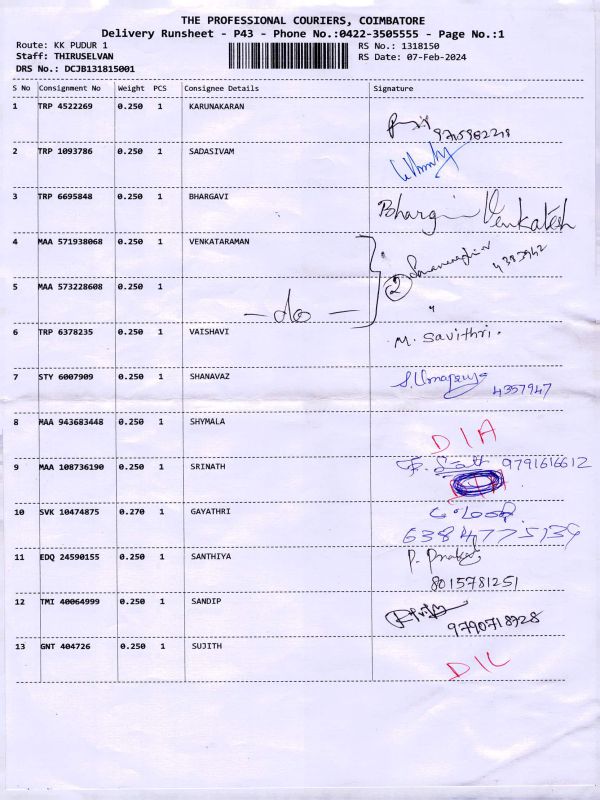 THE PROFESSIONAL COURIERS, COIMBATORE
Delivery Runsheet - P43 - Phone No.:0422-3505555 - Page No.:1
Route: KK PUDUR 1 RS No.: 1318150
Staff: THIRUSELVAN RS Date: 07-Feb-2024
DRS No.: DCJB131815001
S No Consignment No Weight PCS Consignee Details Signature
1 TRP 4522269 0.250 1 KARUNAKARAN
2 TRP 1093786 0.250 1 SADASIVAM
3 TRP 6695848 0.250 1 BHARGAVI Venkatesh
4 MAA 571938068 0.250 1 VENKATARAMAN
5 MAA 573228608 0.250 1 2
- do -
6 TRP 6378235 0.250 1 VAISHAVI M. Savithri.
7 STY 6007909 0.250 1 SHANAVAZ
4357947
8 MAA 943683448 0.250 1 SHYMALA D/A
9 MAA 108736190 0.250 1 SRINATH 9791616612
10 SVK 10474875 0.270 1 GAYATHRI
6384775139
11 EDQ 24590155 0.250 1 SANTHIYA
8015781251
12 TMI 40064999 0.250 1 SANDIP
13 GNT 404726 0.250 1 SUJITH D/L